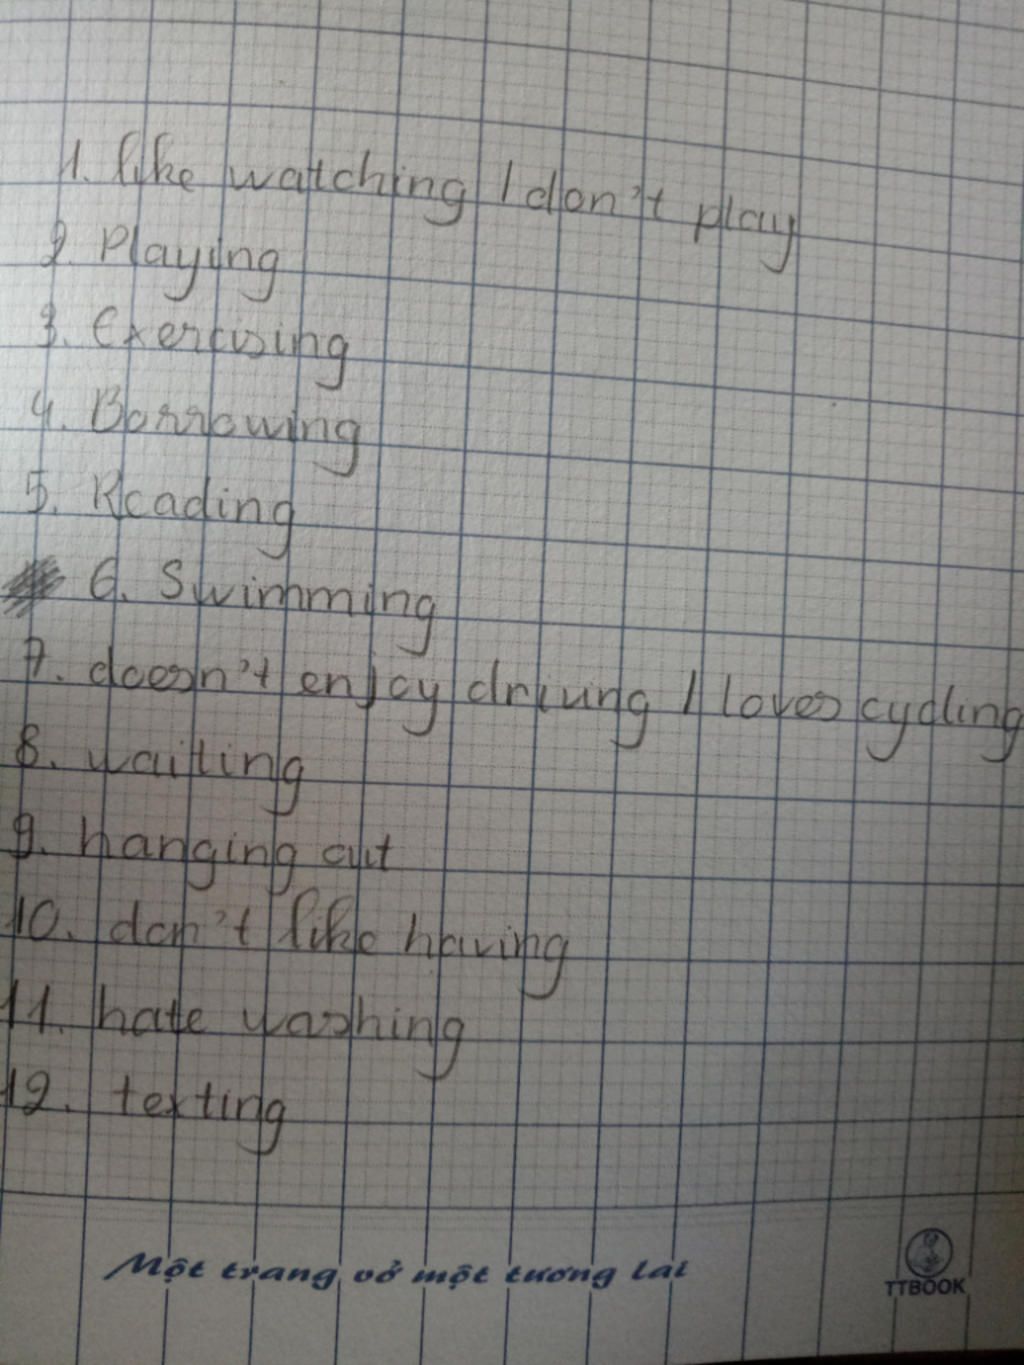 1. like watching / don't play
2. Playing
3. Exercising
4. Borrowing
5. Reading
6. Swimming
7. doesn't enjoy driving / loves cycling
8. waiting
9. hanging out
10. don't like having
11. hate washing
12. texting
Một trang vở một tương lai
TTBOOK